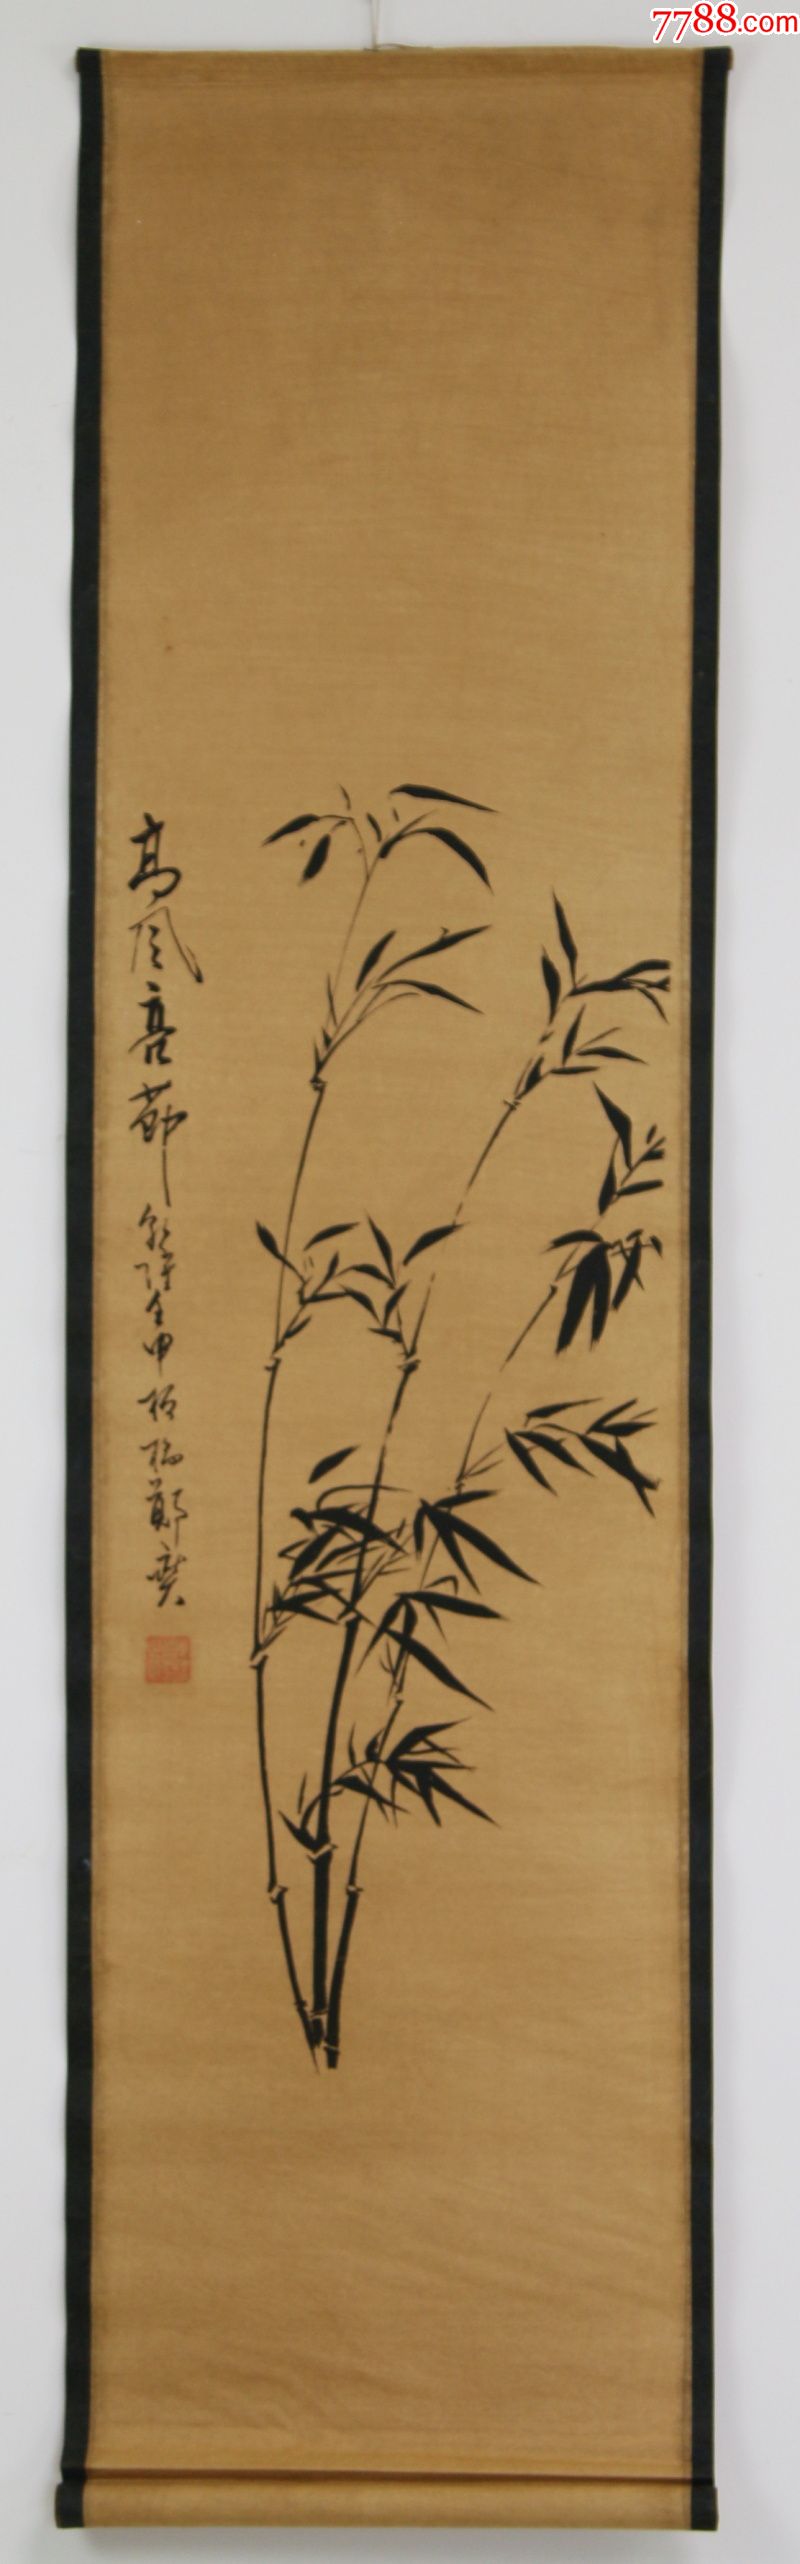 7788.com
高风亮節
乾隆壬申板橋鄭燮